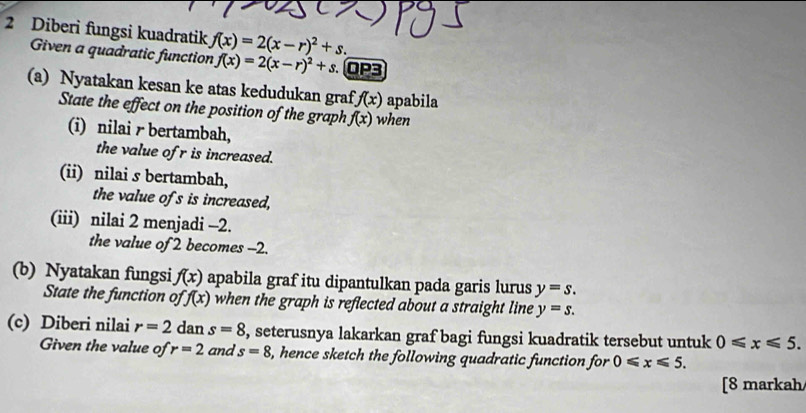 pg 5
2 Diberi fungsi kuadratik f(x) = 2(x − r)² + s.
Given a quadratic function f(x) = 2(x − r)² + s. OP3
(a) Nyatakan kesan ke atas kedudukan graf f(x) apabila
State the effect on the position of the graph f(x) when
(i) nilai r bertambah,
the value of r is increased.
(ii) nilai s bertambah,
the value of s is increased,
(iii) nilai 2 menjadi –2.
the value of 2 becomes –2.
(b) Nyatakan fungsi f(x) apabila graf itu dipantulkan pada garis lurus y = s.
State the function of f(x) when the graph is reflected about a straight line y = s.
(c) Diberi nilai r = 2 dan s = 8, seterusnya lakarkan graf bagi fungsi kuadratik tersebut untuk 0 ⩽ x ⩽ 5.
Given the value of r = 2 and s = 8, hence sketch the following quadratic function for 0 ⩽ x ⩽ 5.
[8 markah